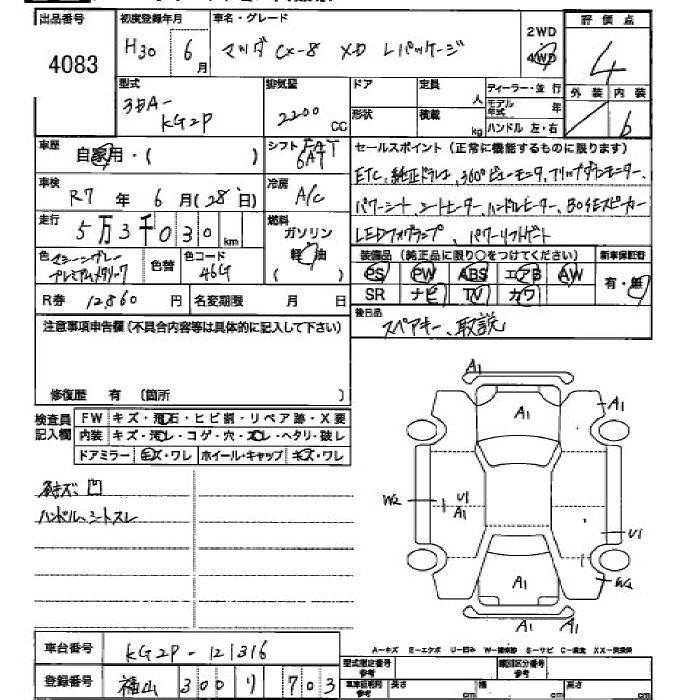 出品番号 初度登録年月 車名・グレード 2WD 評価点
4083 H30年 6月 マツダ CX-8 XD Lパッケージ 4WD 4
型式 排気量 ドア 定員 人 ディーラー・並行 外装 内装
3DA-KG2P 2200 CC 形状 積載 kg モデル年式 年 ハンドル 左・右 6
車歴 自家用・( ) シフト FAT 6AT セールスポイント (正常に機能するものに限ります)
車検 R7年 6月(28日) 冷房 A/C ETC、純正ドラレコ、360°ビューモニタ、フリップダウンモニター、
走行 5万3千030km 燃料 ガソリン 軽油 ( ) パワーシート、シートヒーター、ハンドルヒーター、BOSEスピーカー
LEDフォグランプ、パワーリフトゲート
色 マシーングレープレミアムメタリック 色替 色コード 46G 装備品 (純正品に限り○をつけてください) 新車保証書
PS PW ABS エアB AW 有・無
R券 12,860円 名変期限 月 日 SR ナビ TV カワ
注意事項申告欄(不具合内容等は具体的に記入して下さい) 後日品
スペアキー、取説
修復歴 有 (箇所 )
検査員記入欄 FW キズ・飛石・ヒビ割・リペア跡・X要
内装 キズ・汚レ・コゲ・穴・スレ・ヘタリ・破レ
ドアミラー キズ・ワレ ホイール・キャップ キズ・ワレ
キズ、凹
ハンドル、シートスレ
A1
A1
A1
W2 U1 A1
U1
A1 W2
A1 A1
A-キズ E-エクボ U-凹み W-補修跡 S-サビ C-腐食 XX-交換済
車台番号 KG2P-121316 型式指定番号 参考 類別区分番号 参考
登録番号 福山 300 リ 703 車車証明用 参考 長さ cm 幅 cm 高さ cm